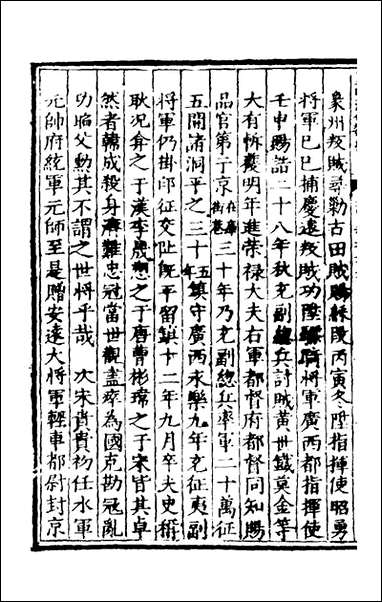 象州叛賊尋勦古田賊賜綵段丙寅冬陞指揮使昭勇
將軍己巳捕慶遠叛賊功陞驃騎將軍廣西都指揮使
壬申賜誥二十八年秋充副總兵討賊黃世鐵莫金等
大有斬獲明年進榮禄大夫右軍都督府都督同知賜
品官第于京三十年乃充副總兵率軍二十萬征
五開諸洞平之三十五年鎮守廣西永樂九年充征夷副
將軍仍掛印征交阯既平留鎮十二年九月卒夫史稱
耿况弇之于漢李晟愬之于唐曹彬瑋之于宋皆其卓
然者韓成殺身濟難忠冠當世觀盡瘁為國克勘冠亂
功埒父勳其不謂之世將乎哉 次宋貴貴初任水軍
元帥府統軍元帥至是贈安遠大將軍輕車都尉封京